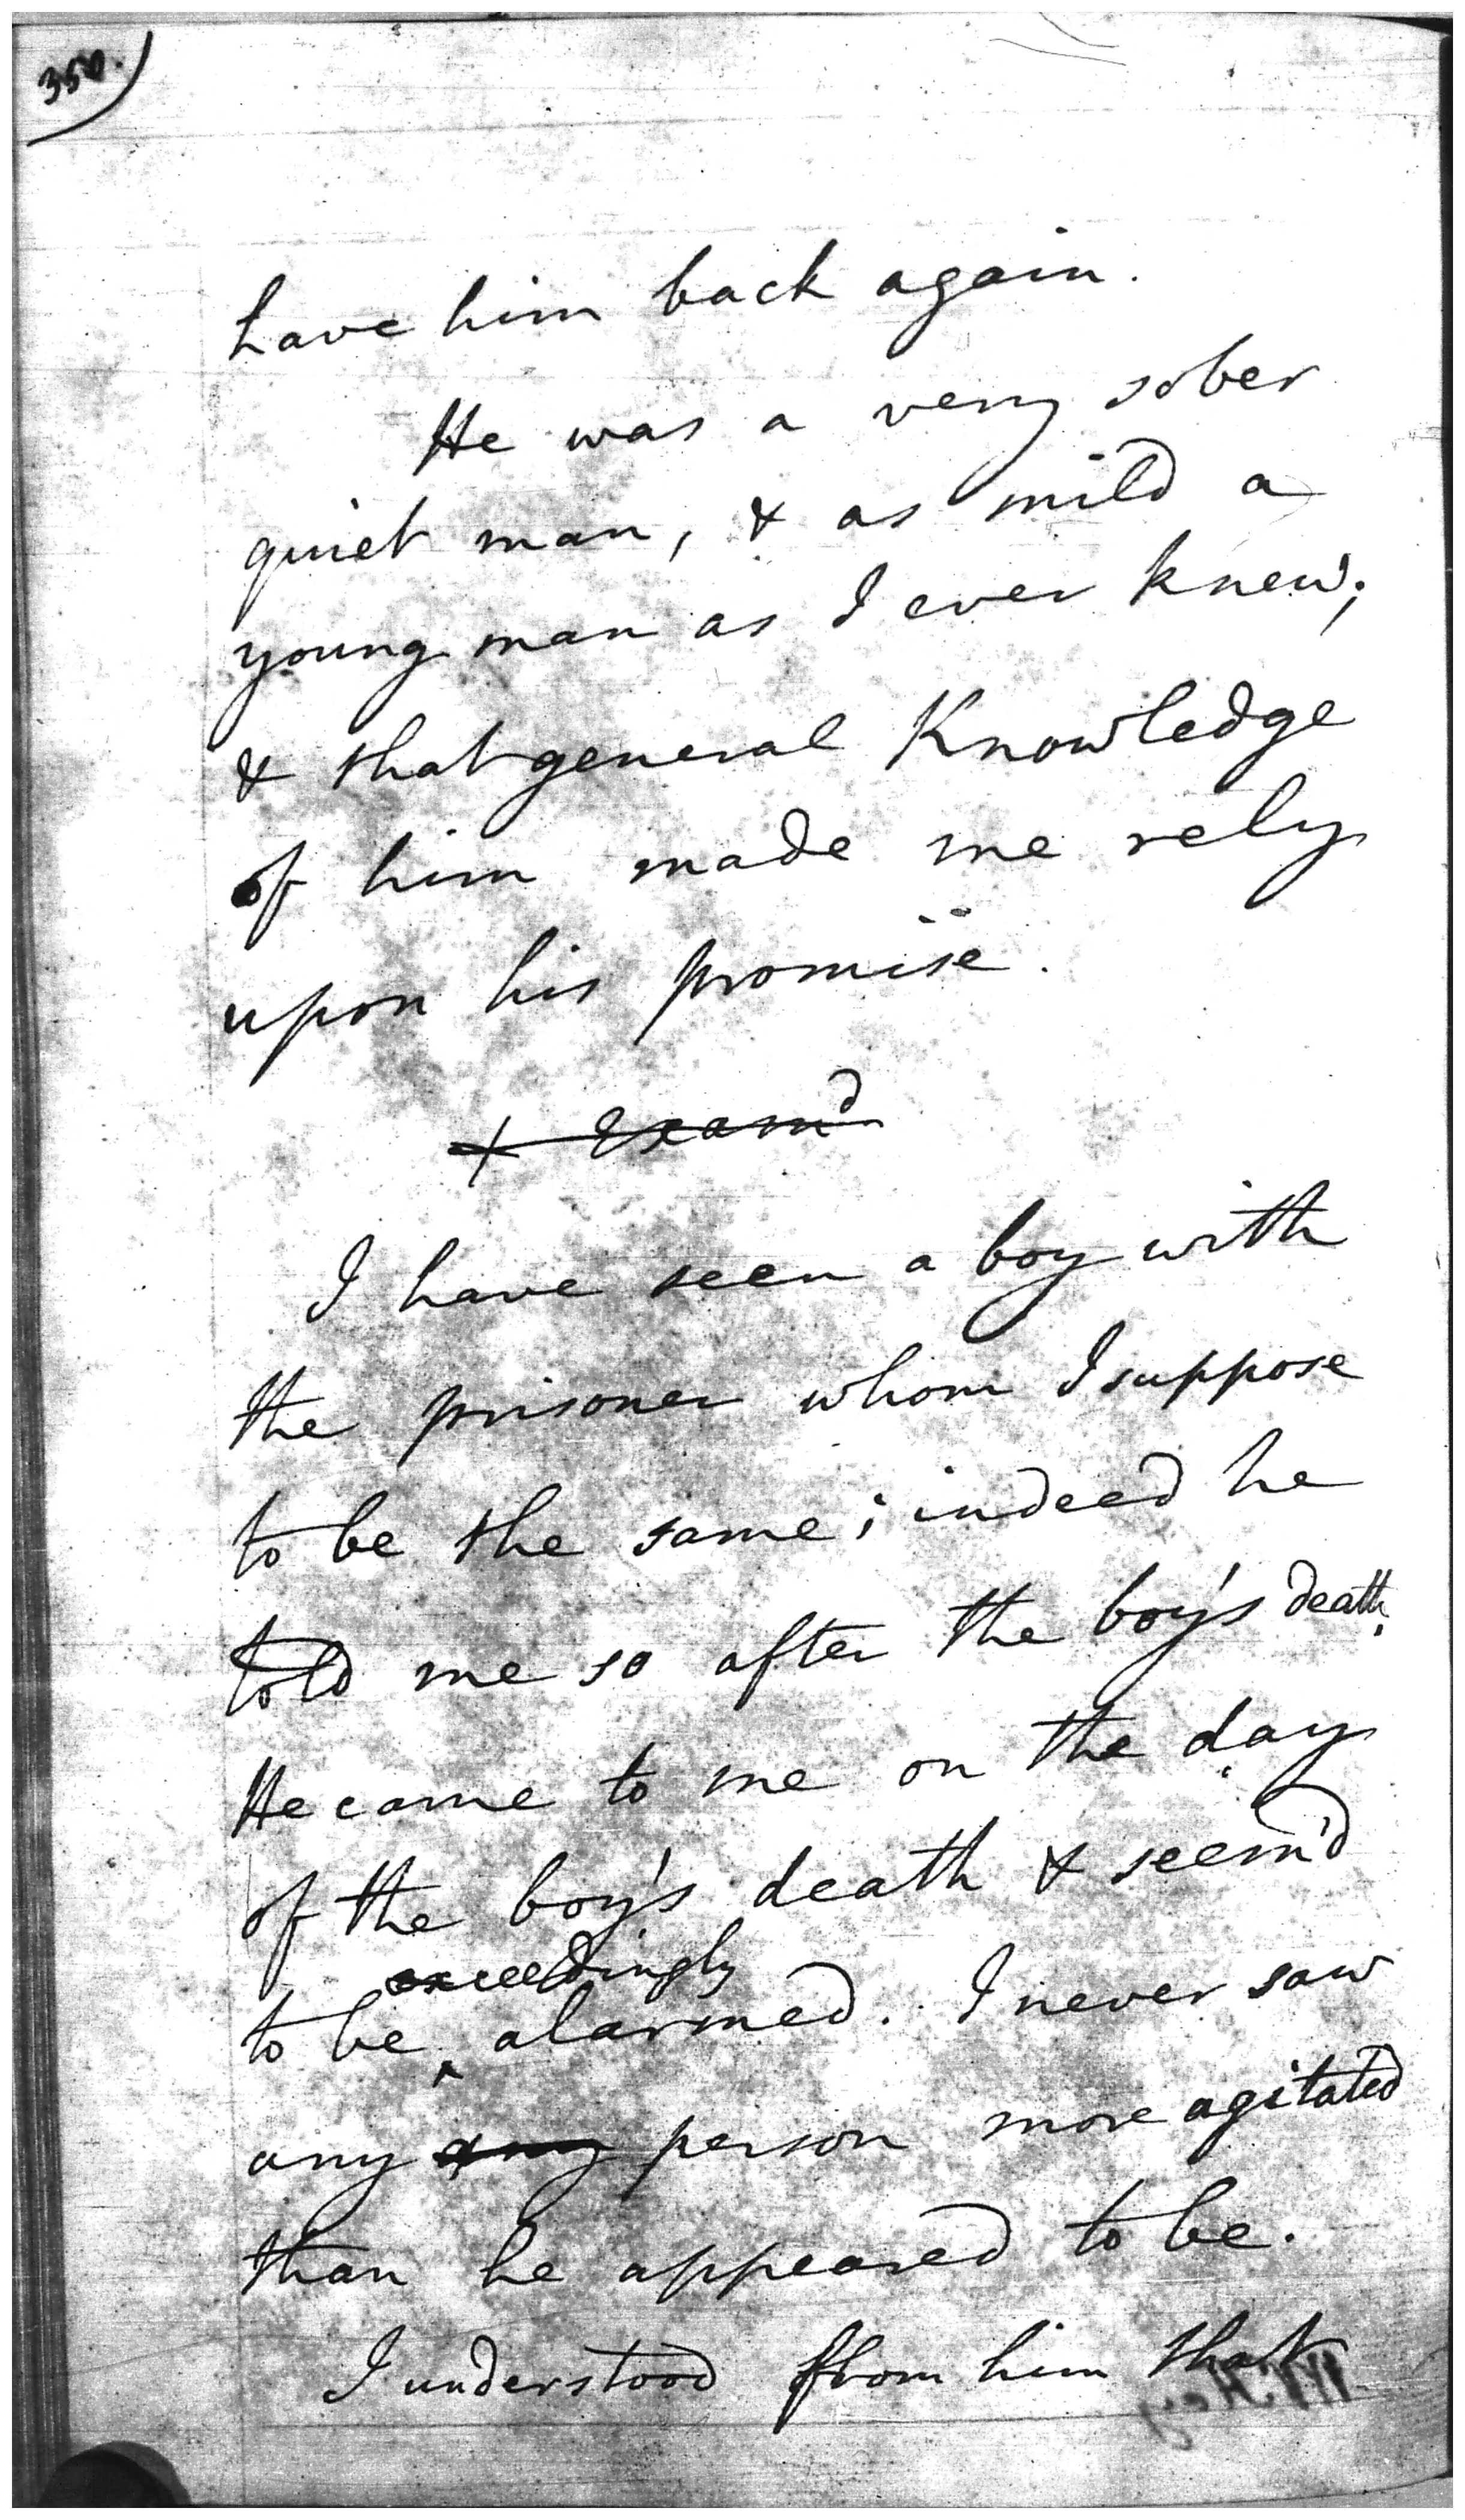 350.
have him back again.
He was a very sober
quiet man, & as mild a
young man as I ever knew;
& that general Knowledge
of him made me rely
upon his promise.
X Examd
I have seen a boy with
the prisoner whom I suppose
to be the same; indeed he
told me so after the boy's death.
He came to me on the day
of the boy's death & seem'd
exceedingly
to be ^ alarmed. I never saw
any any person more agitated
than he appeared to be.
I understood from him that